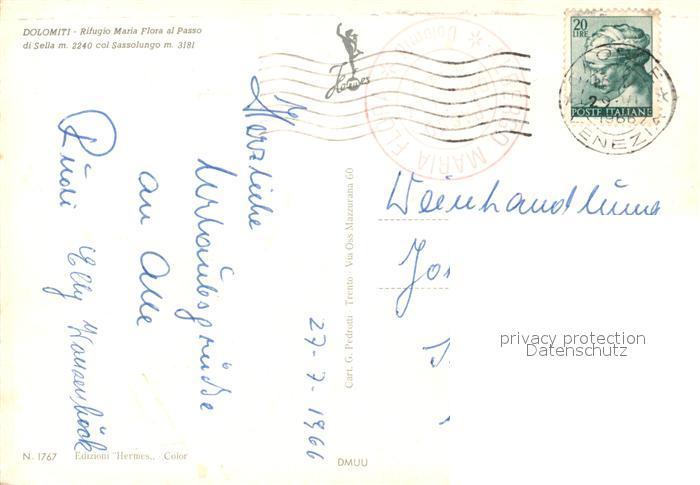 DOLOMITI - Rifugio Maria Flora al Passo
di Sella m. 2240 col Sassolungo m. 3181
Hermes
20
LIRE
POSTE ITALIANE
VENEZIA
1966
MARIA FLORA
Herzliche
Urlaubsgrüße
an Alle
Rudi Elly
27-7-1966
Cart. G. Pedrotti - Trento - Via Oss Mazzurana 60
Weinhandlung
Jos
privacy protection
Datenschutz
N. 1767 Edizioni "Hermes,, Color
DMUU